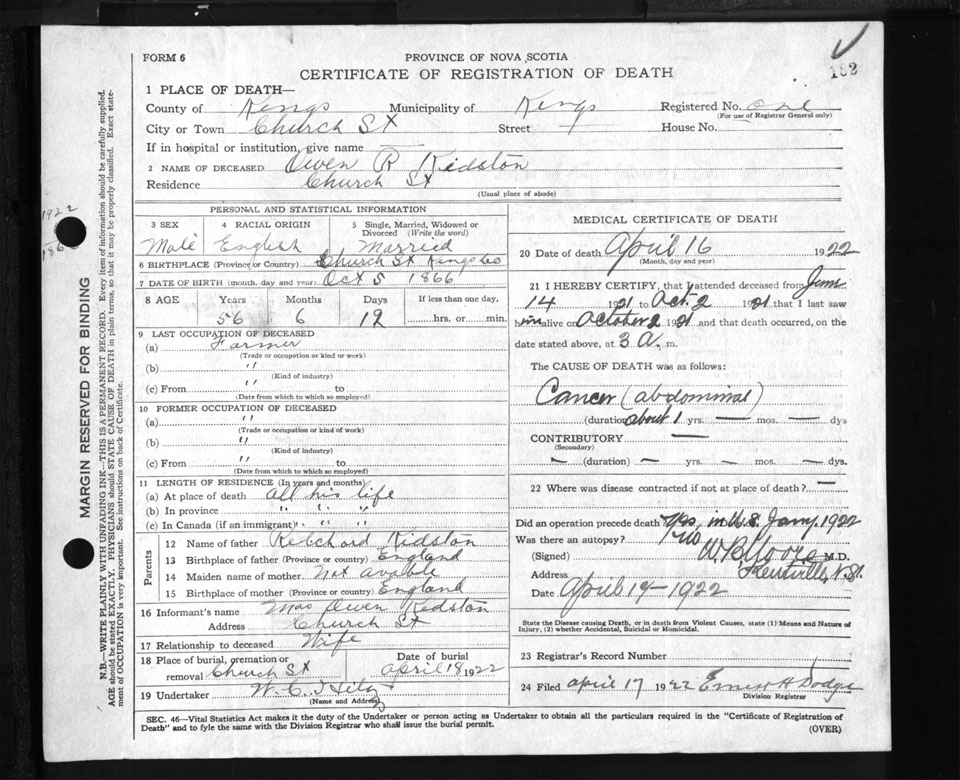 FORM 6
PROVINCE OF NOVA SCOTIA
CERTIFICATE OF REGISTRATION OF DEATH
192
1 PLACE OF DEATH—
County of Kings Municipality of Kings Registered No. one
(For use of Registrar General only)
City or Town Church St Street House No.
If in hospital or institution, give name —
2 NAME OF DECEASED Owen R Kidston
Residence Church St
(Usual place of abode)
PERSONAL AND STATISTICAL INFORMATION
3 SEX 4 RACIAL ORIGIN 5 Single, Married, Widowed or Divorced (Write the word)
Male English Married
6 BIRTHPLACE (Province or Country) Church St Kings Co
7 DATE OF BIRTH (month, day, and year) Oct 5 1866
8 AGE Years Months Days If less than one day,
56 6 12 ......hrs. or ...... min.
9 LAST OCCUPATION OF DECEASED
(a) Farmer
(Trade or occupation or kind or work)
(b) "
(Kind of industry)
(c) From " to
(Date from which to which so employed)
10 FORMER OCCUPATION OF DECEASED
(a) "
(Trade or occupation or kind of work)
(b) "
(Kind of industry)
(c) From " to
(Date from which to which so employed)
11 LENGTH OF RESIDENCE (In years and months)
(a) At place of death all his life
(b) In province " " "
(c) In Canada (if an immigrant) " " "
Parents
12 Name of father Retchord Kidston
13 Birthplace of father (Province or country) England
14 Maiden name of mother Not avable
15 Birthplace of mother (Province or country) England
16 Informant's name Mrs Owen Kidston
Address Church St
17 Relationship to deceased Wife
18 Place of burial, cremation or removal Church St
Date of burial April 18 1922
19 Undertaker W. C.
(Name and Address)
MEDICAL CERTIFICATE OF DEATH
20 Date of death April 16 1922
(Month, day and year)
21 I HEREBY CERTIFY, that I attended deceased from June
14 1921 to Oct. 2 1921 that I last saw
him alive on October 2 1921 and that death occurred, on
date stated above, at 3 a. m.
The CAUSE OF DEATH was as follows:
Cancer (abdominal)
(duration) about 1 yrs. — mos. — dys
CONTRIBUTORY —
(Secondary)
— (duration) — yrs. — mos. — dys.
22 Where was disease contracted if not at place of death? —
Did an operation precede death Yes, in U.S. Jany. 1922
Was there an autopsy? No
(Signed) M.D.
Address Kentville, N.S.
Date April 19— 1922
State the Disease causing Death, or in death from Violent Causes, state (1) Means and Nature of Injury, (2) whether Accidental, Suicidal or Homicidal.
23 Registrar's Record Number
24 Filed April 17 1922 Ernest H Dodge
Division Registrar
SEC. 46—Vital Statistics Act makes it the duty of the Undertaker or person acting as Undertaker to obtain all the particulars required in the "Certificate of Registration of
Death" and to fyle the same with the Division Registrar who shall issue the burial permit.
(OVER)
MARGIN RESERVED FOR BINDING
N.B.—WRITE PLAINLY WITH UNFADING INK—THIS IS A PERMANENT RECORD. Every item of information should be carefully supplied.
AGE should be stated EXACTLY. PHYSICIANS should STATE CAUSE OF DEATH in plain terms, so that it may be properly classified. Exact statement of OCCUPATION is very important. See instructions on back of Certificate.
1922
186